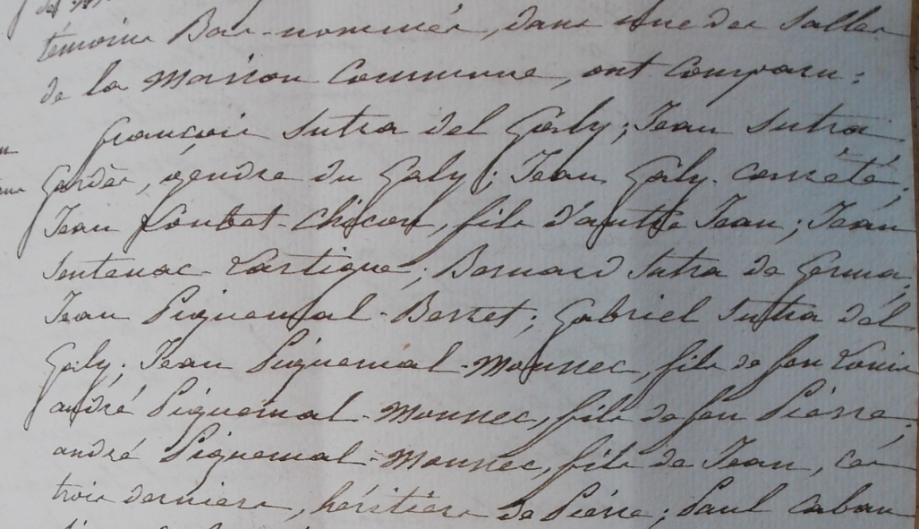 témoins Bas-nommés, dans une des Salles
de la Maison Commune, ont Comparu:
françois Sutra del Galy; Jean Sutra
Gardès, gendre du Galy; Jean Galy-Conreté;
Jean Loubet-Chicou, fils d'autre Jean; Jean
Sentenac-Lartigue; Bernard Sutra de Germa;
Jean Piquemal-Berret; Gabriel Sutra del
Galy; Jean Piquemal-Mounec, fils de feu Louis
andré Piquemal-Mounec, fils de feu Pierre,
andré Piquemal-Mounec, fils de Jean, ces
trois derniers, héritiers de Pierre; Paul Caban